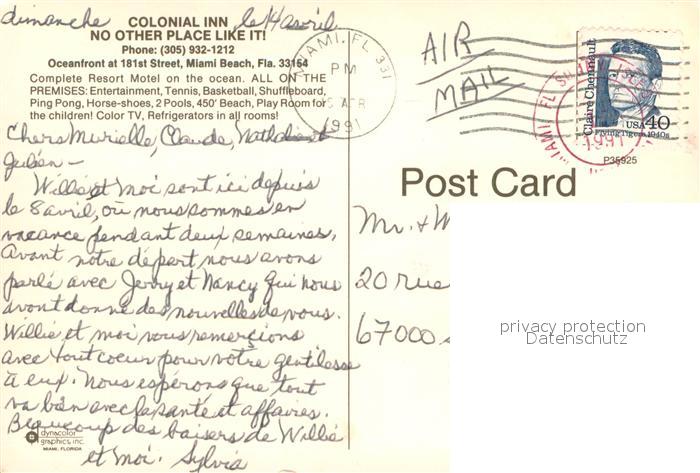 dimanche le 14 avril
COLONIAL INN
NO OTHER PLACE LIKE IT!
Phone: (305) 932-1212
Oceanfront at 181st Street, Miami Beach, Fla. 33154
Complete Resort Motel on the ocean. ALL ON THE
PREMISES: Entertainment, Tennis, Basketball, Shuffleboard,
Ping Pong, Horse-shoes, 2 Pools, 450' Beach, Play Room for
the children! Color TV, Refrigerators in all rooms!
Chers Murielle, Claude, Nathalie et
Julien –
Willie et moi sont ici depuis
le 8 avril, où nous sommes en
vacance pendant deux semaines.
Avant notre départ nous avons
parlé avec Jerry et Nancy qui nous
avont donné des nouvelles de vous.
Willie et moi vous remerçions
avec tout coeur pour votre gentilesse
à eux. Nous espérons que tout
va bien avec la santé et affaires.
Beaucoup des baisers de Willie
et moi. Sylvia
dynacolor
graphics, inc.
MIAMI, FLORIDA
MIAMI, FL 331
PM
APR
1991
AIR
MAIL
Claire Chennault
USA 40
Flying Tigers, 1940s
MIAMI FL
1991
P35925
Post Card
Mr. & M
20 rue
67000
privacy protection
Datenschutz